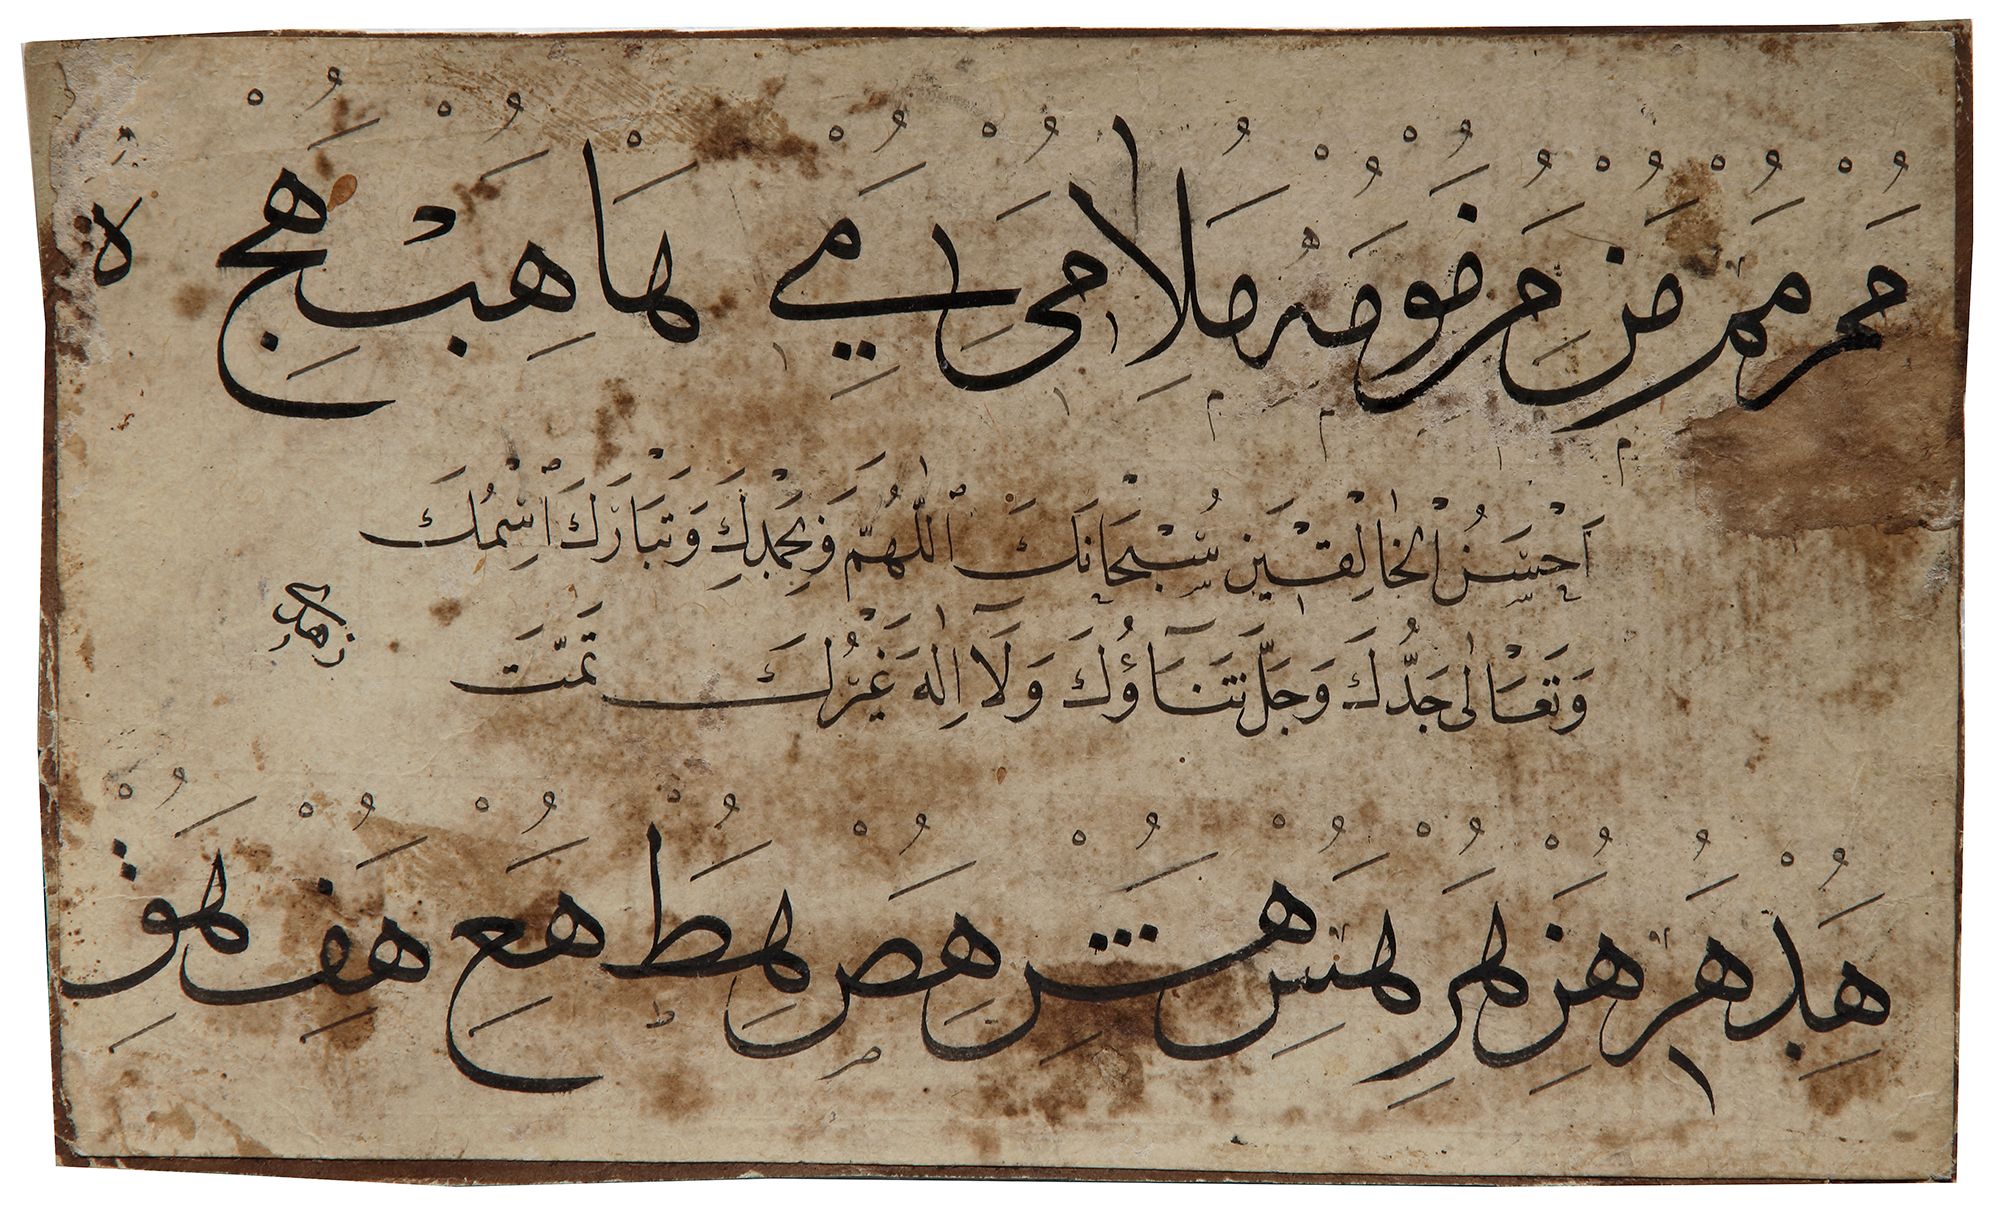 مم مم من مو مه ملا مى مي ها هب هج
اَحْسَنُ الْخَالِقٖينَ سُبْحَانَكَ اللّٰهُمَّ وَبِحَمْدِكَ وَتَبَارَكَ اسْمُكَ
وَتَعَالٰى جَدُّكَ وَجَلَّ ثَنَاؤُكَ وَلَا اِلٰهَ غَيْرُكَ تَمَّتْ
زهدى
هد هر هز هر هس هش هص هط هع هف هق